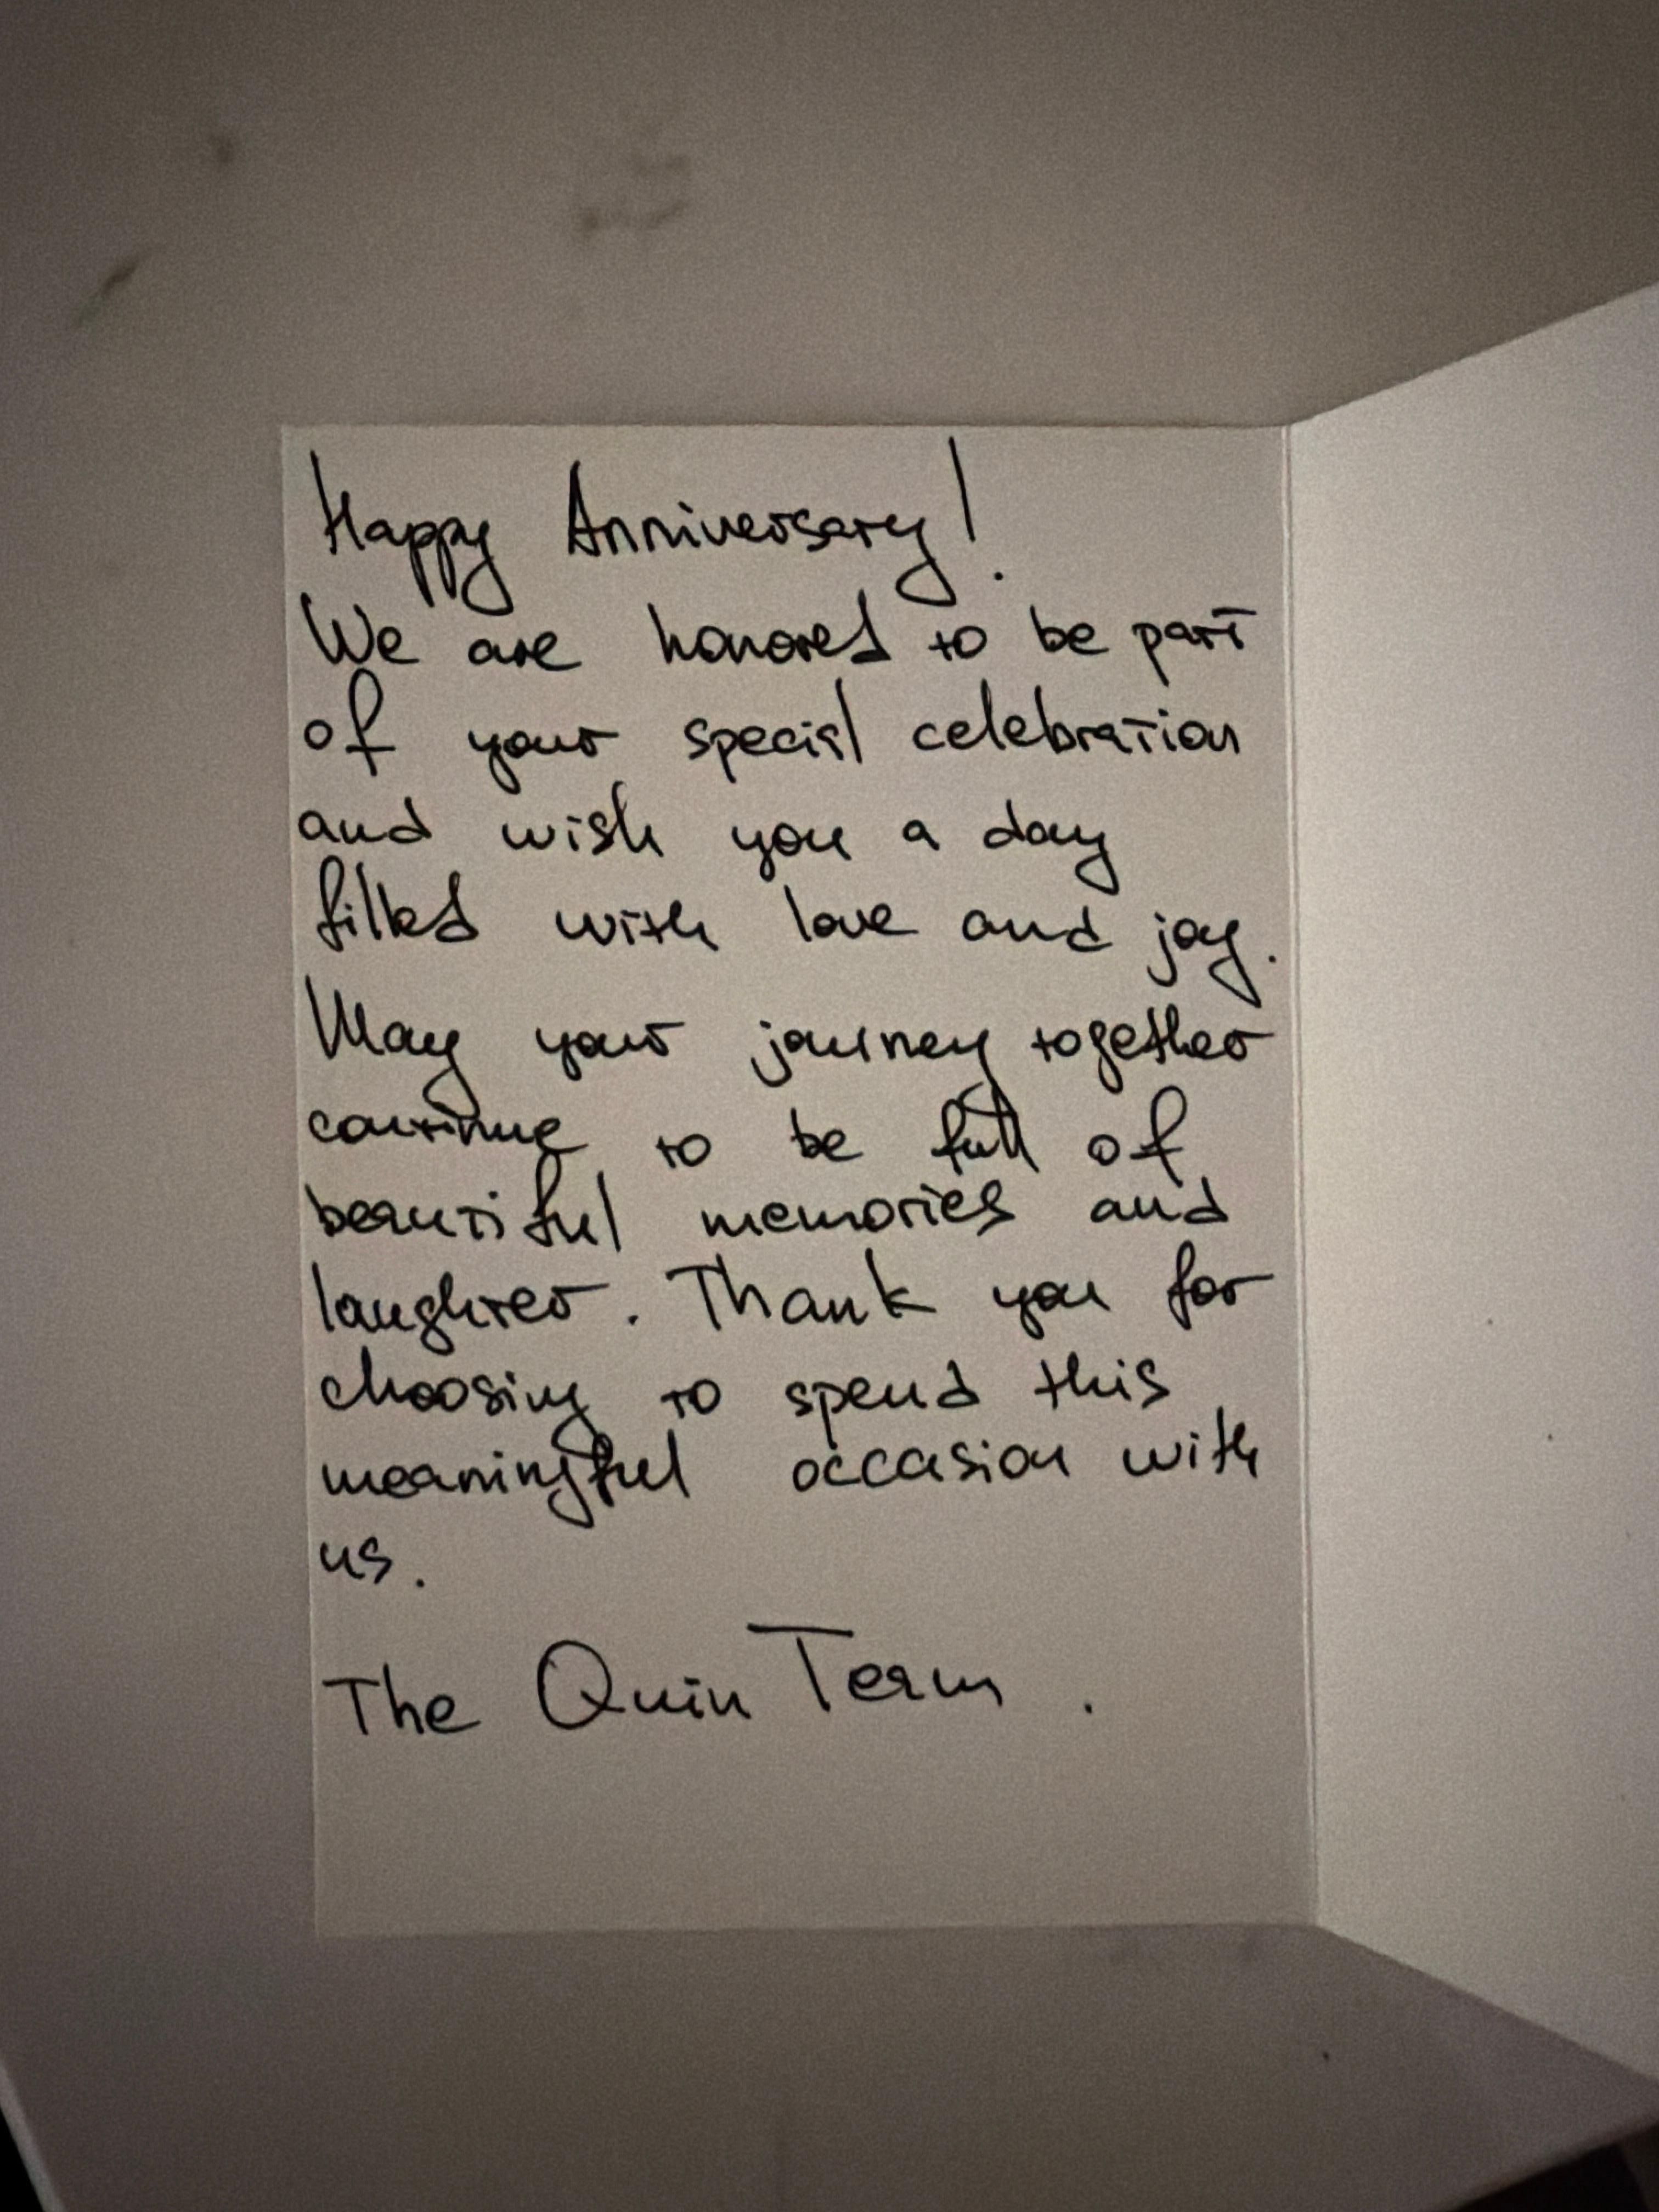 Happy Anniversary!
We are honored to be part
of your special celebration
and wish you a day
filled with love and joy.
May your journey together
continue to be full of
beautiful memories and
laughter. Thank you for
choosing to spend this
meaningful occasion with
us.
The Quin Team.